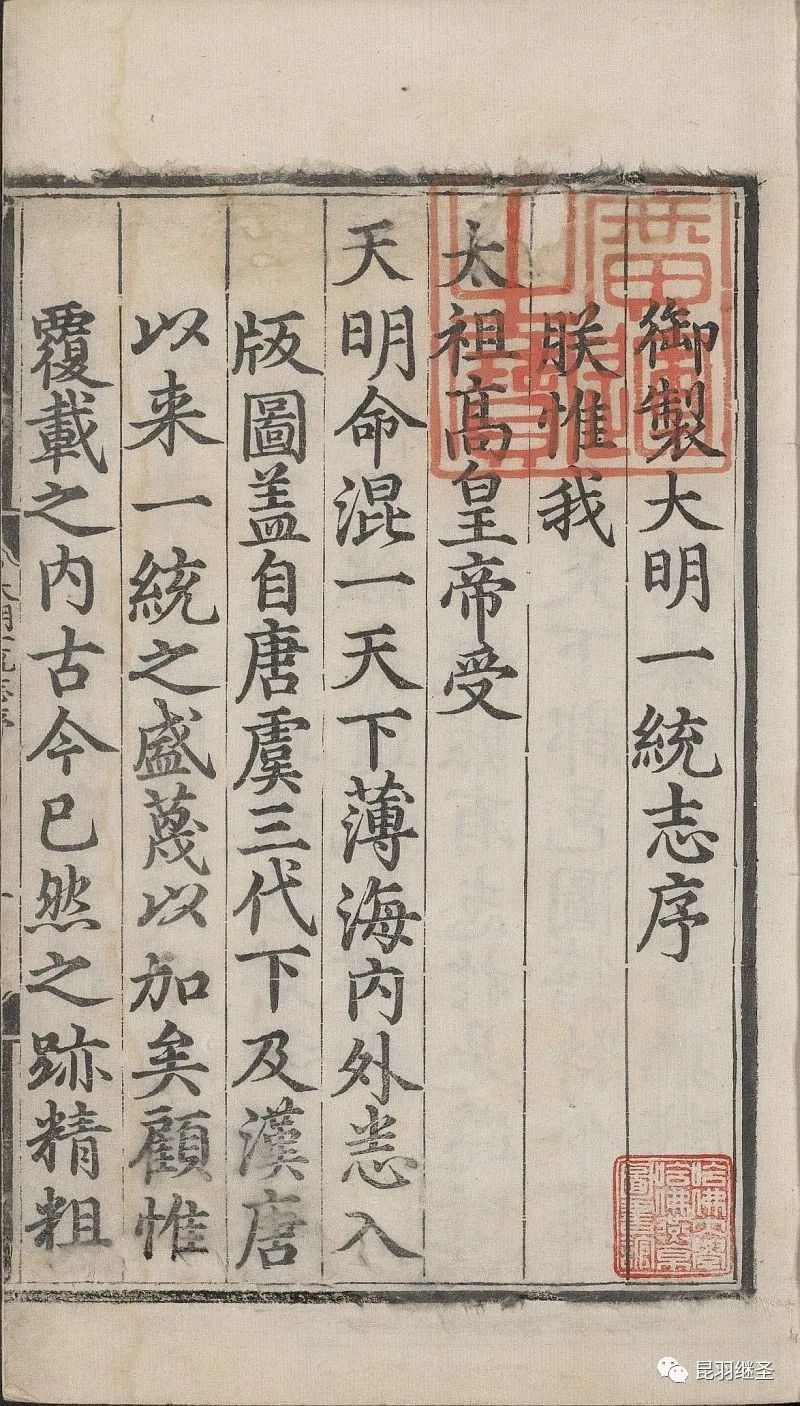 廣運之寶
御製大明一統志序
朕惟我
太祖高皇帝受
天明命混一天下薄海内外悉入
版圖盖自唐虞三代下及漢唐
以来一統之盛蔑以加矣顧惟
覆載之内古今已然之跡精粗
大明一統志序
昆羽继圣